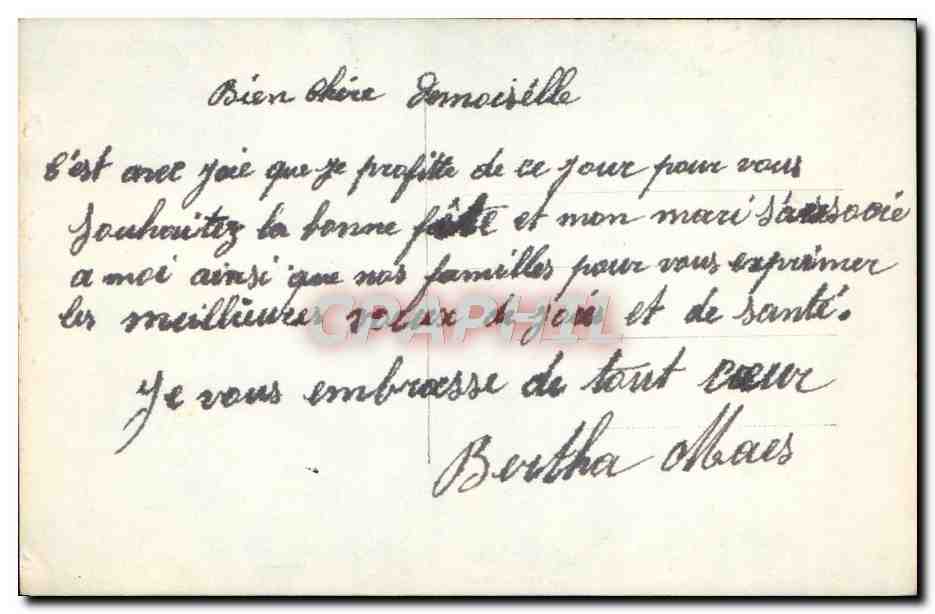 Bien Chère Demoisèlle
C'est avec joie que je profitte de ce jour pour vous
souhaitez la bonne fête et mon mari s'associe
a moi ainsi que nos familles pour vous exprimer
les meillieures voeux de joie et de santé.
Je vous embrasse de tout cœur
Bertha Maes
CPAPHIL